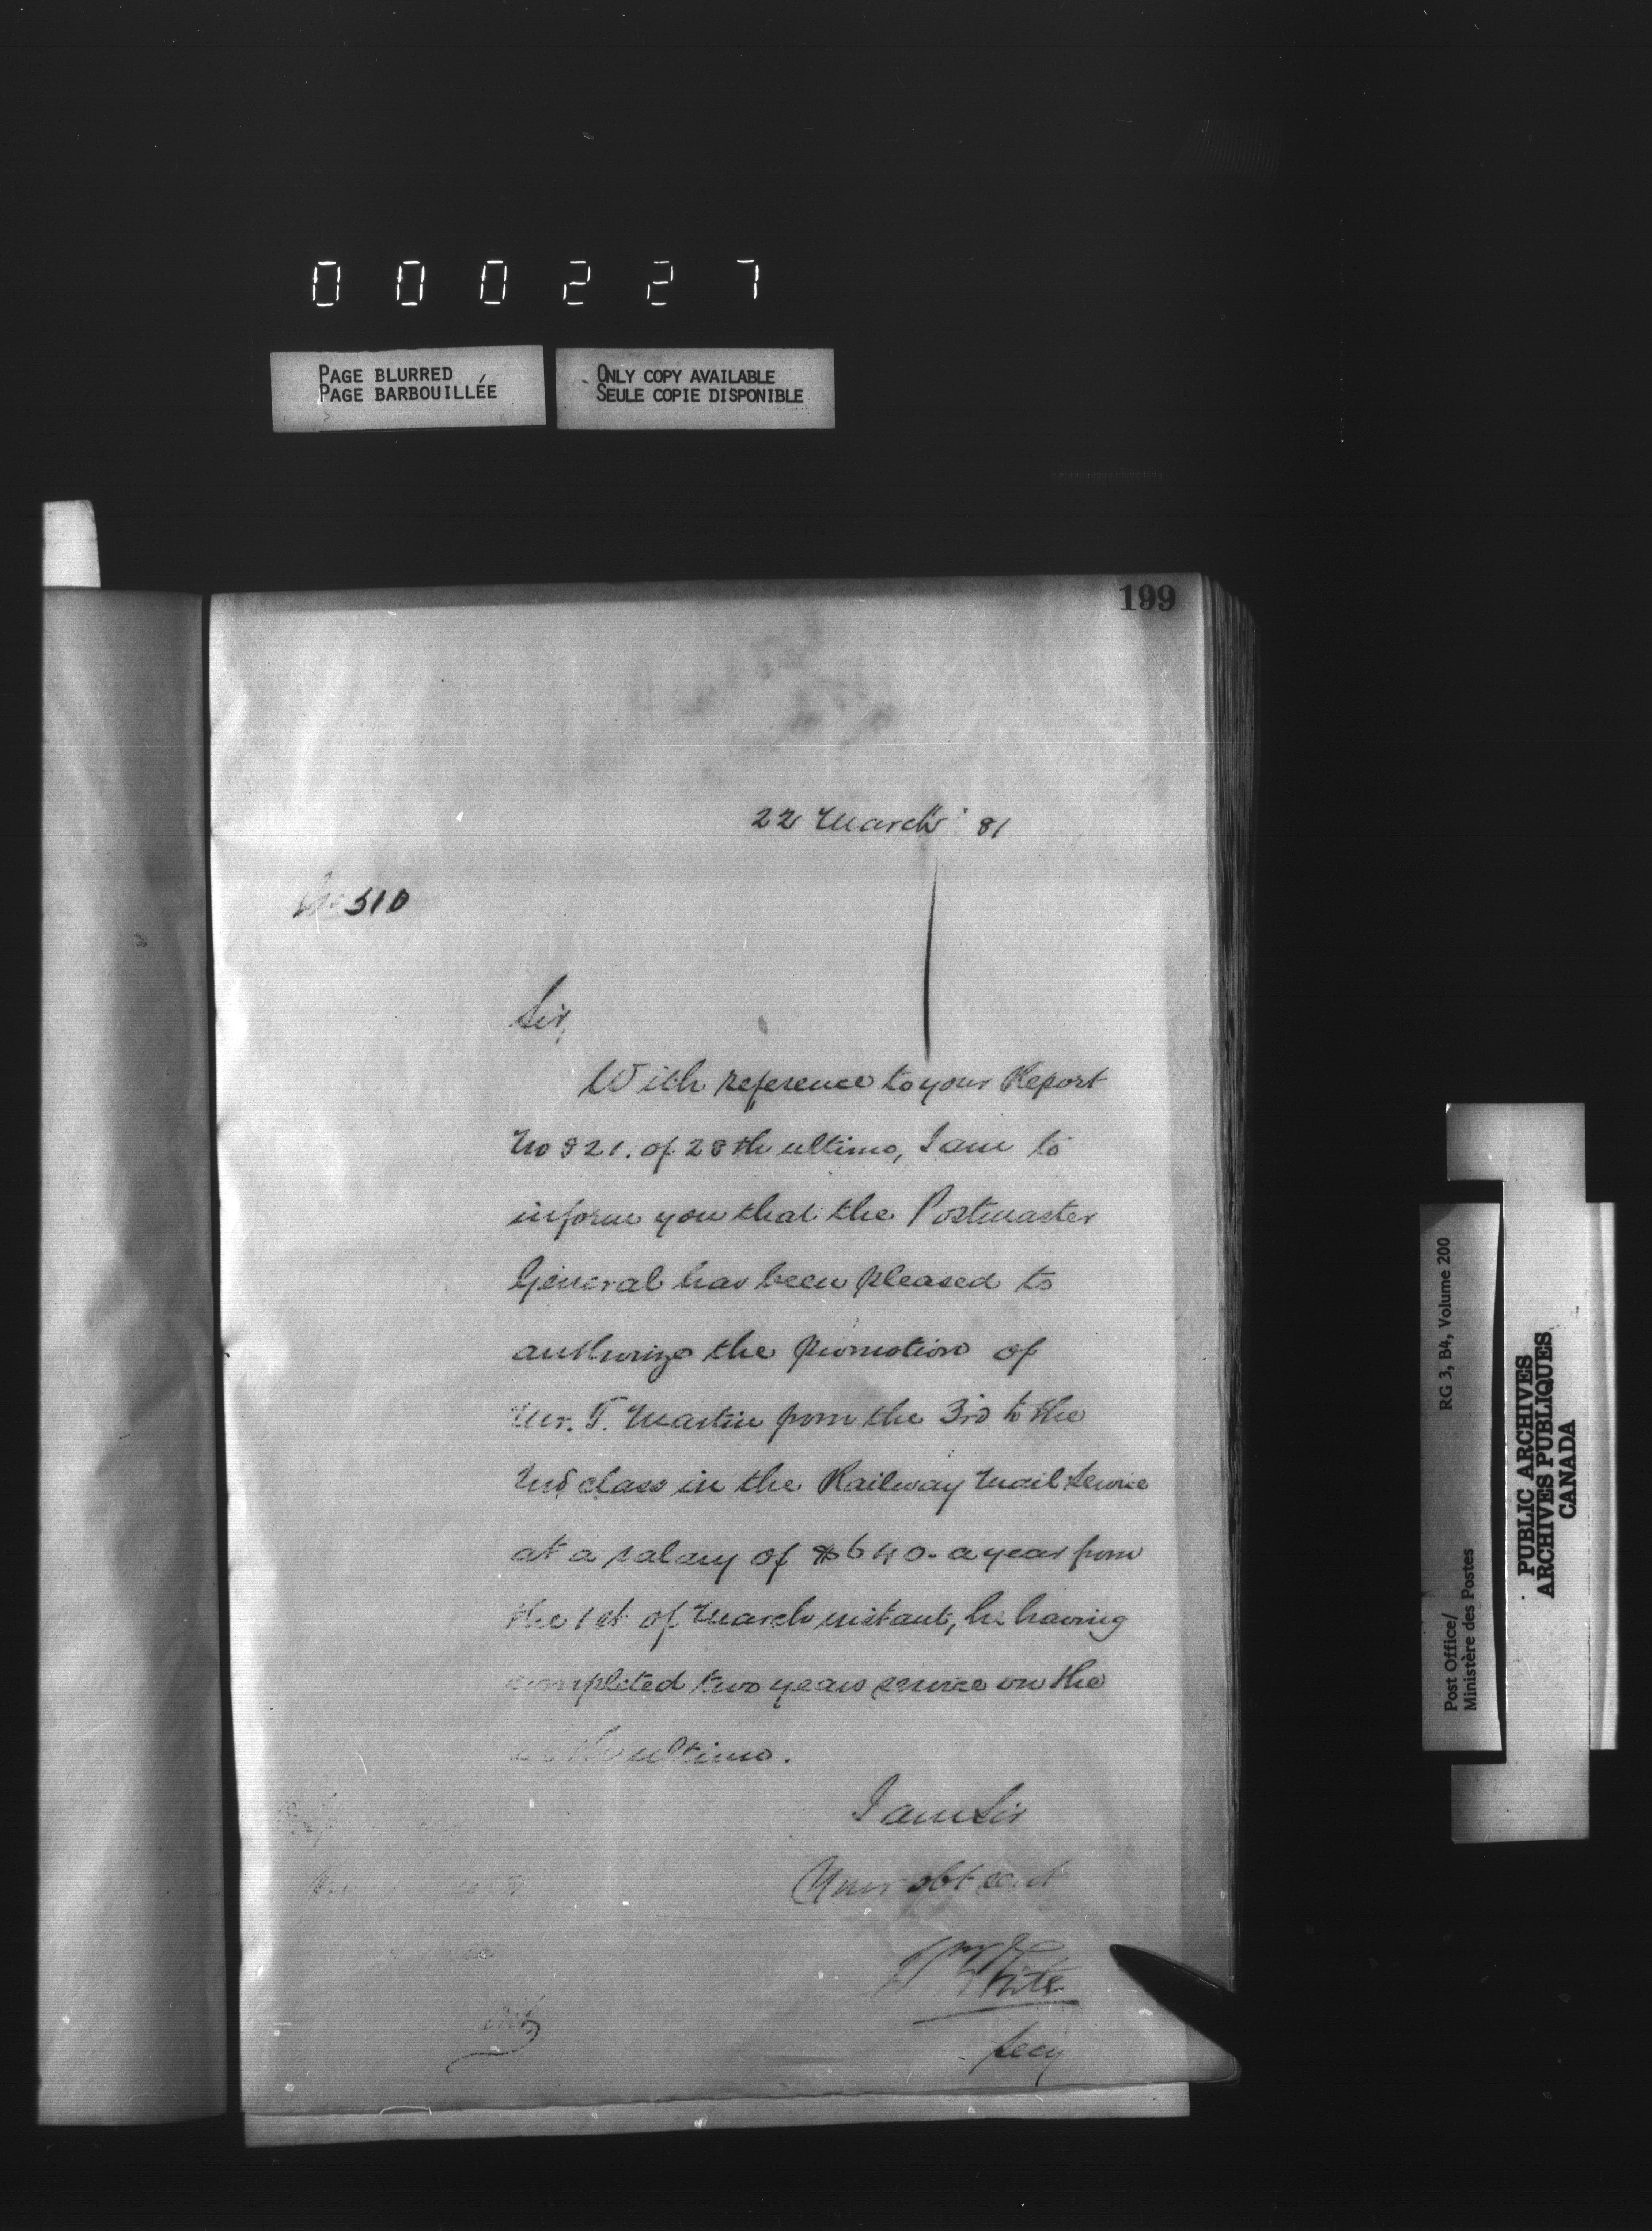 000227
PAGE BLURRED
PAGE BARBOUILLÉE
ONLY COPY AVAILABLE
SEULE COPIE DISPONIBLE
199
22 March '81
No 510
Sir,
With reference to your Report
No 821. of 28th ultimo, I am to
inform you that the Postmaster
General has been pleased to
authorize the promotion of
Mr. T. Martin from the 3rd to the
2nd class in the Railway Mail Service
at a salary of $640. a year from
the 1st of March instant, he having
completed two years service on the
ultimo.
I am Sir
Your obt servt
Wm White
Secy
RG 3, B4, Volume 200
Post Office/
Ministère des Postes
PUBLIC ARCHIVES
ARCHIVES PUBLIQUES
CANADA